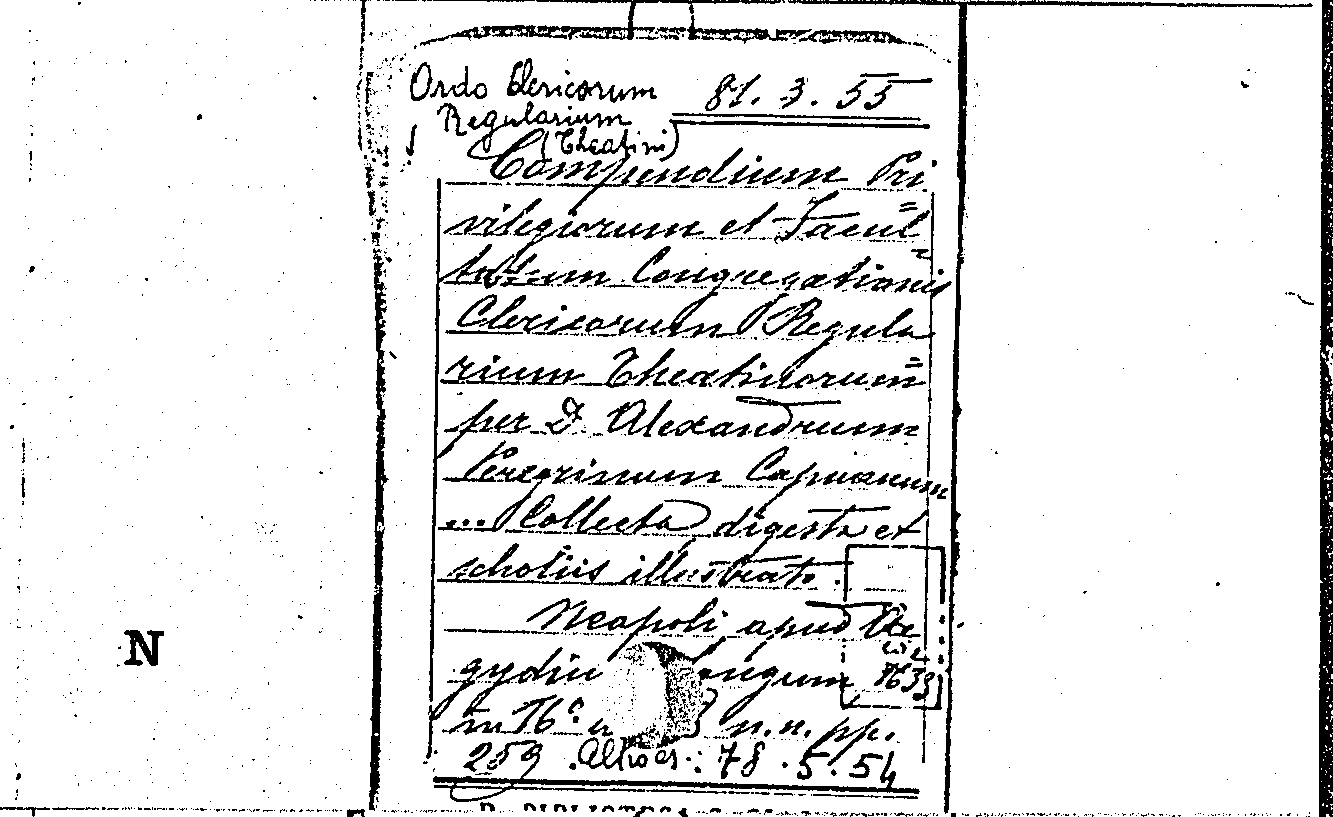 Ordo Clericorum 81. 3. 55
Regularium
(Theatini)
Compendium Pri
vilegiorum et Facul=
tatum Congregationis
Clericorum Regula
rium Theatinorum
per D. Alexandrum
Peregrinum Capuanum
... Collecta digesta et
scholiis illustrata.
Neapoli apud Ae
gydiu ongum 1633
in 16º n.n. pp.
259. Altro es.: 78.5.54
N